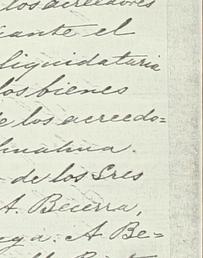 los acreedores
cante el
liquidataria
los bienes
e los acreedo=
hualma.
- de los Sres
A. Becerra,
A. Be=